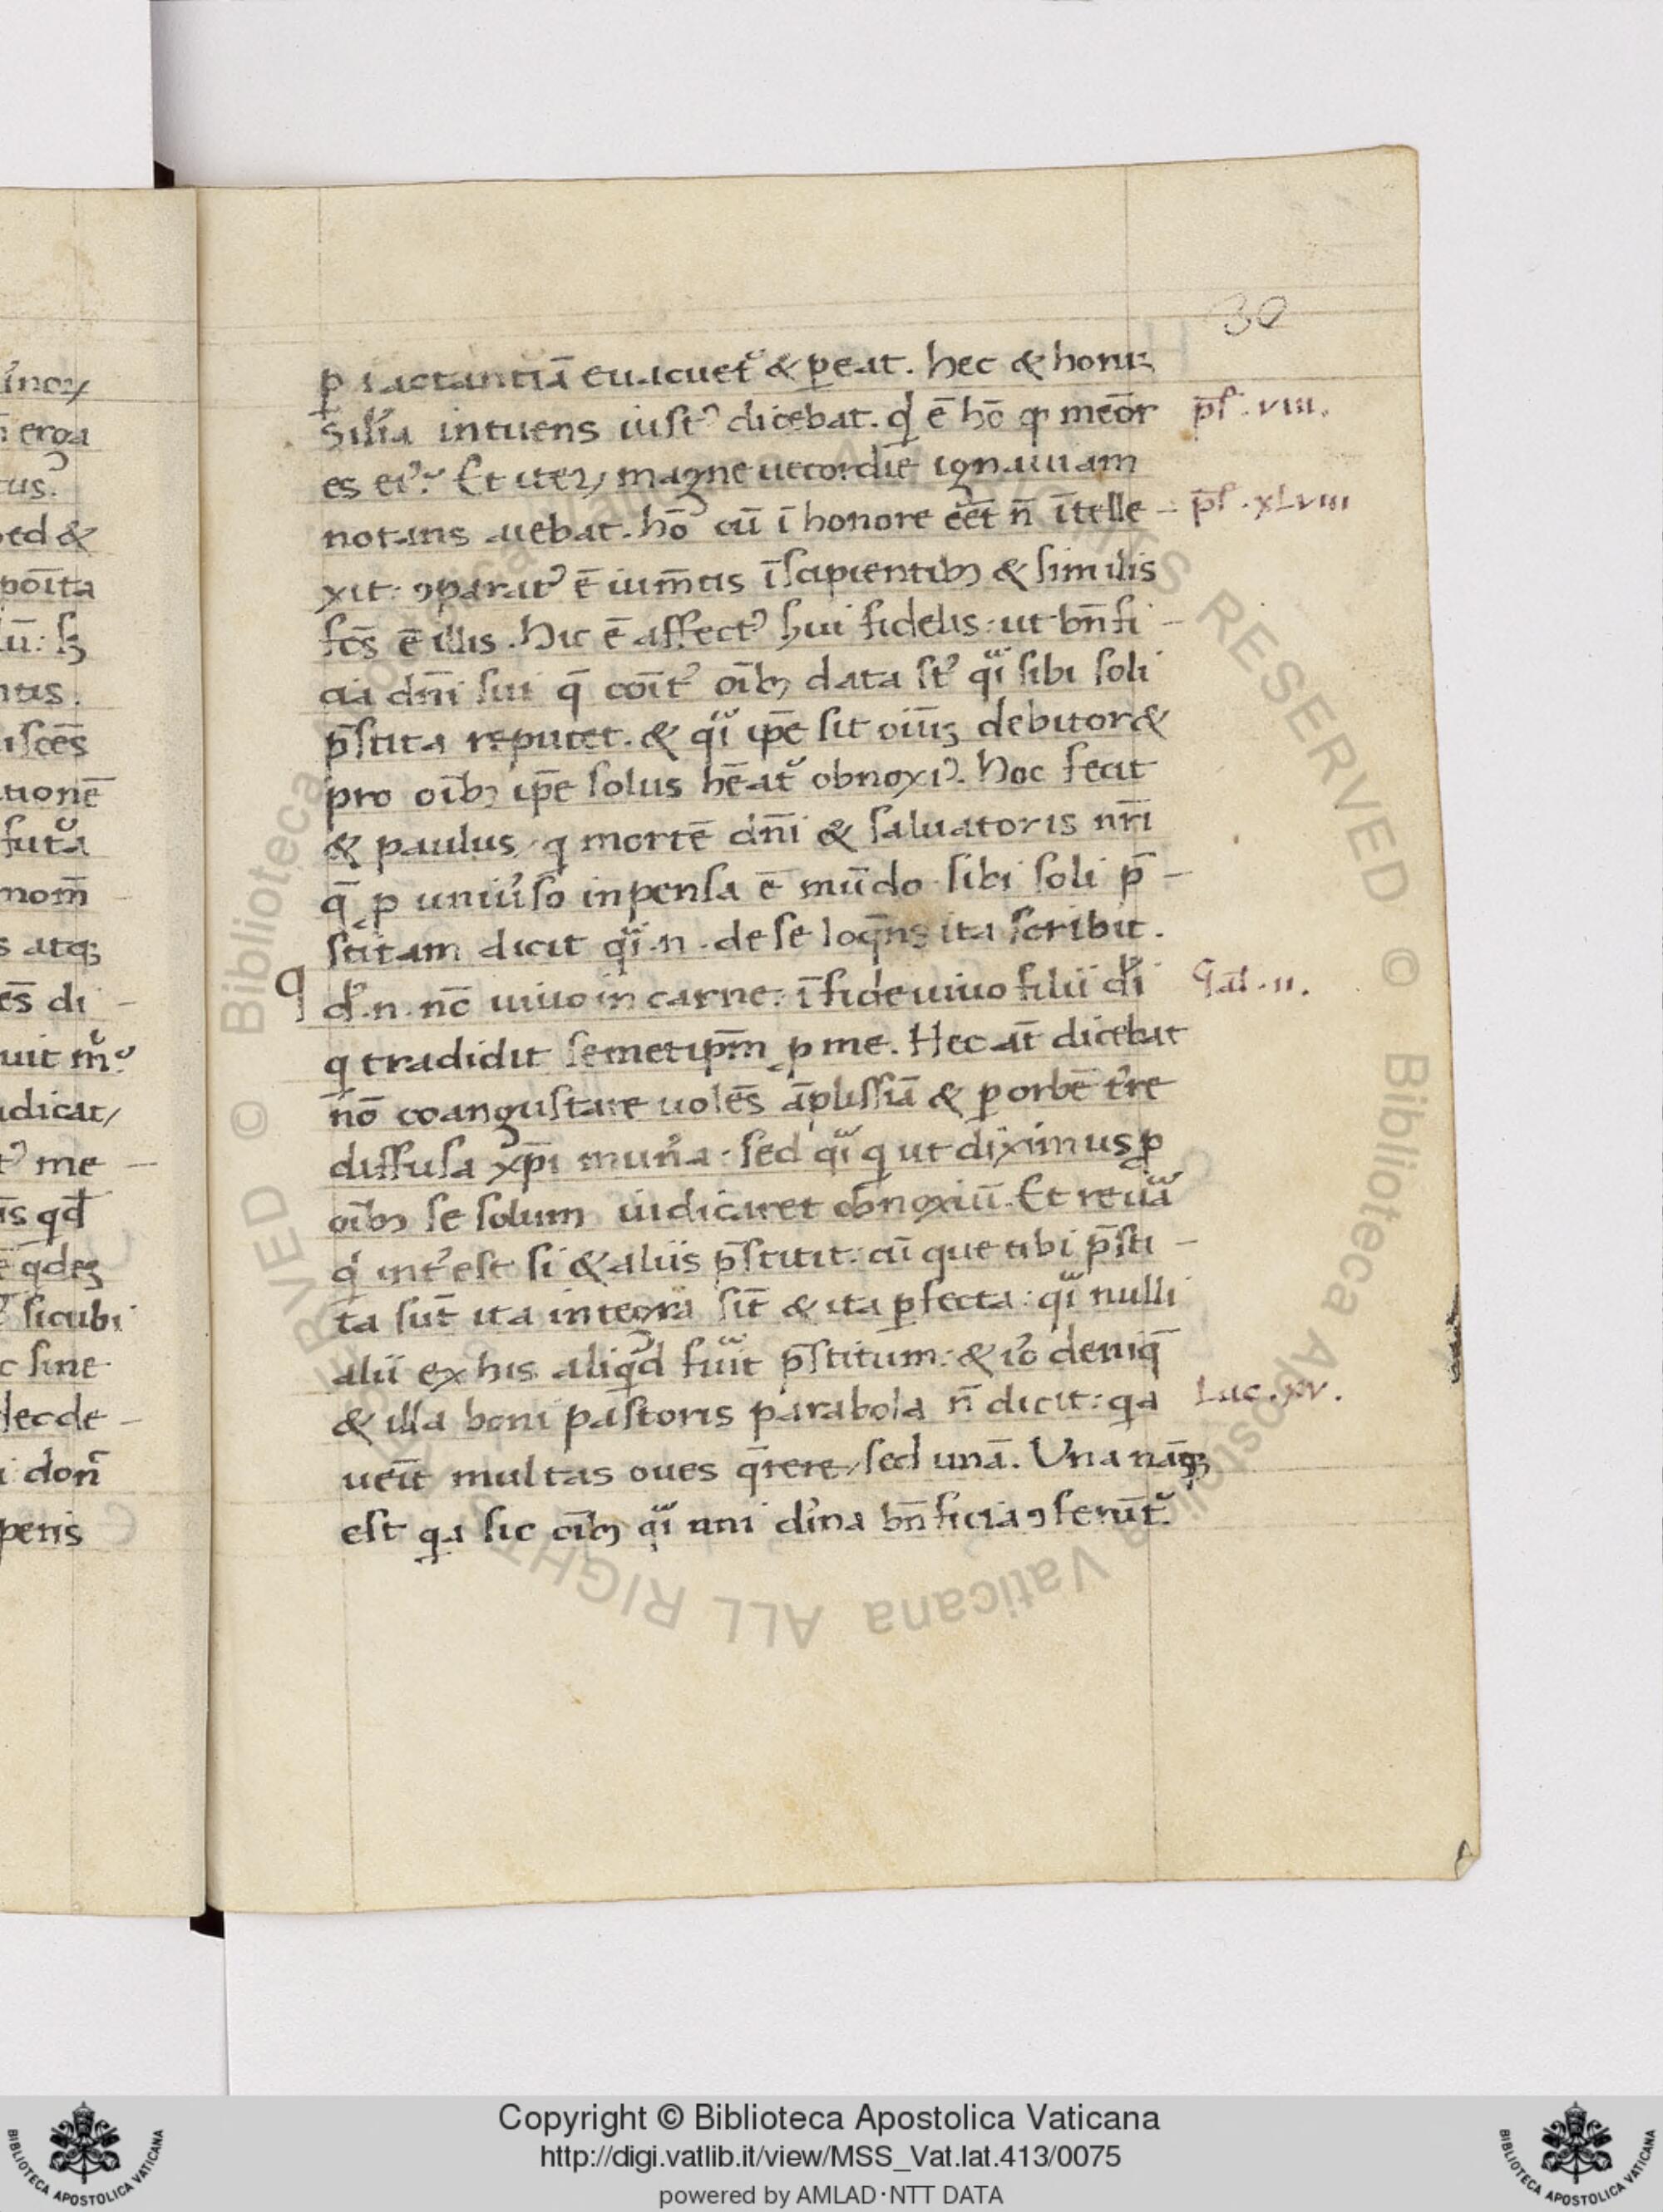 30
ꝑ iactantiā euacuet᷑ & ꝑeat. hec & honꝝ
silia intuens iustꝰ dicebat. qd̓ ē hō qͥ meōr
es eiꝰ? Et iteꝝ magne uecordie ignauiam
notans aiebat. hō cū ī honore eēt n̄ ītelle -
xit: ꝯparatꝰ ē ium̄tis īsipientibꝫ & similis
fcs̄ ē illis. Hic ē affectꝰ ẜui fidelis: ut bn̄fi -
cia dn̄i sui q̄ coīt᷑ oībꝫ data st᷑ qͣi sibi soli
p̄stita reputet. & qͣi ip̄e sit oiūꝫ debitor &
pro oībꝫ ip̄e solus hēat᷑ obnoxiꝰ. Hoc fecit
& paulus, qͥ mortē dn̄i & saluatoris nr̄i
q̄ ꝓ uniu̓so inpensa ē mūdo sibi soli p̄ -
stitam dicit qͣi .n. de se loq̄ns ita scribit.
qd̓ .n. nc̄ uiuo in carne: ī fide uiuo filii dī
qͥ tradidit semetip̄m ꝓ me. Hec aūt dicebat
nō coangustare uolēs āplissīa & ꝑ orbē tr̓e
diffusa xp̄i mun̓a: sed qͣi qͥ ut diximus ꝓ
oībꝫ se solum iudicaret obnoxiū. Et reuͣa
qd̓ int̓est si & aliis p̄stitit: cū que tibi p̄sti -
ta sūt ita integra sīt & ita ꝑfecta: qͣi nulli
alii ex his aliqͥd fuͣit p̄stitum: & iō deniq̄
& illa boni pastoris parabola n̄ dicit: qͥa
uēit multas oues q̄rere, sed unā. Una nāqꝫ
est qͥa sic oībꝫ qͣi uni diͥna bn̄ficia ꝯferūt᷑.
ps̄. VIII.
ps̄. XLVIII
Gal̄. II.
Luc. XV.
Copyright © Biblioteca Apostolica Vaticana
http://digi.vatlib.it/view/MSS_Vat.lat.413/0075
powered by AMLAD·NTT DATA